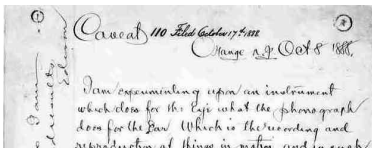 Caveat 110 Filed October 17th 1888
Orange N.J. Oct 8 1888.
I am experimenting upon an instrument
which does for the Eye what the phonograph
does for the Ear Which is the recording and
reproduction of things in motion and in such
I am
d results
Edison